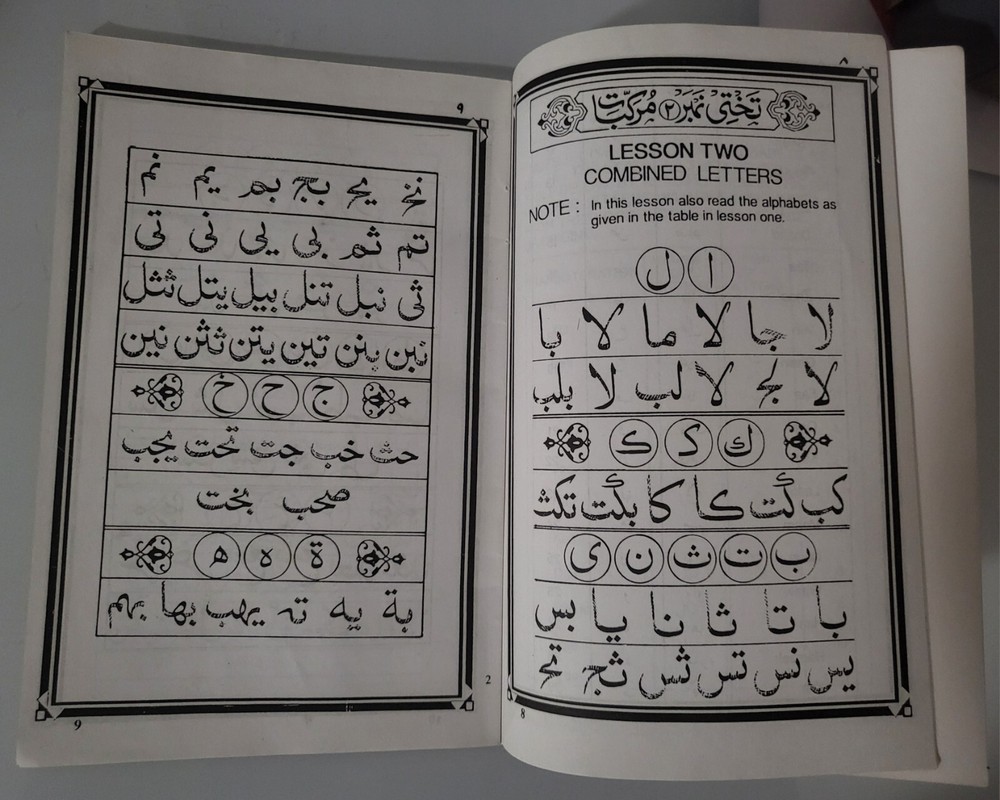 ٨
تختی نمبر ٢ مرکبات
LESSON TWO
COMBINED LETTERS
NOTE : In this lesson also read the alphabets as
given in the table in lesson one.
ا ل
لا جا لا ما لا با
لا لج لا لب لا بلب
ك ک ڪ
کب کت کا کا بکت تکث
ب ت ث ن ی
با تا ثا نا یا بس
یس نس تس ثس ثج تح
8
٩
نخ یح بج بم یم نم
تم ثم بی یی نی تی
ثی نبل تنل بیل یتل ثثل
نبن بنن تین یتن ثثن نین
ج ح خ
حث خب جت تحت یجب
صحب بخت
ة ه ھ
بة یه تہ یهب بها بہم
2
9